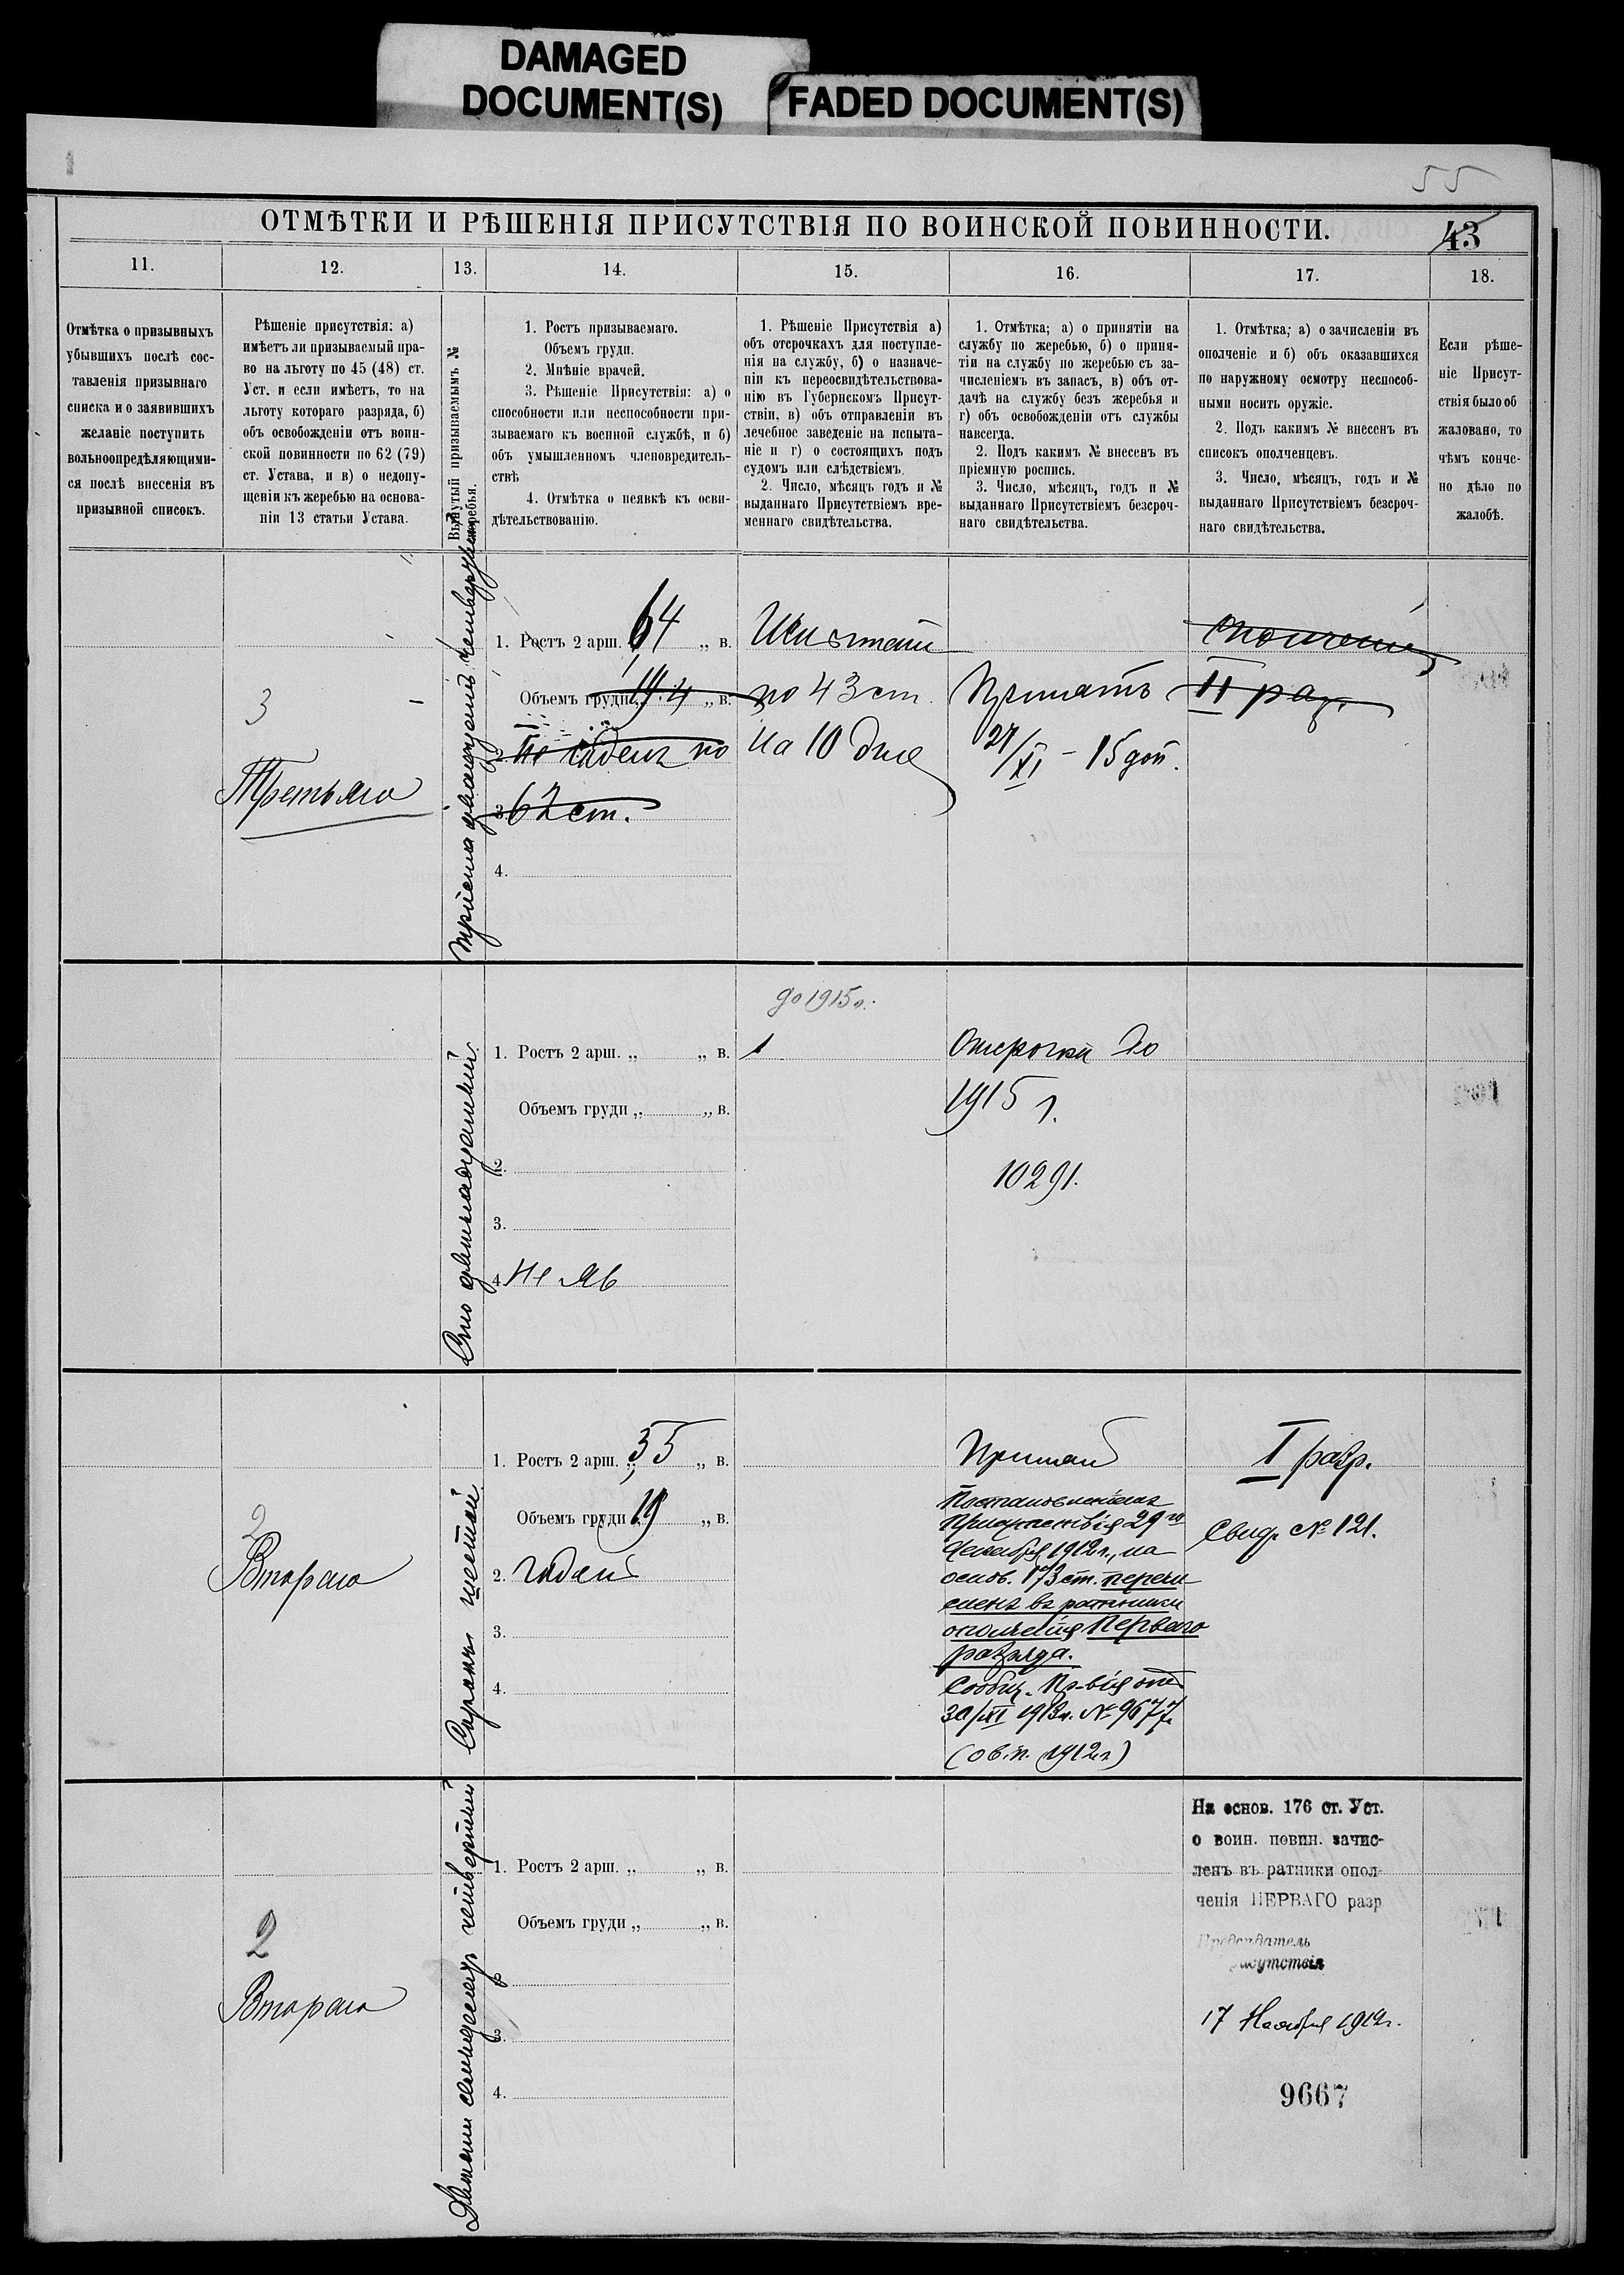 DAMAGED
DOCUMENT(S)
FADED DOCUMENT(S)
55
ОТМѢТКИ И РѢШЕНІЯ ПРИСУТСТВІЯ ПО ВОИНСКОЙ ПОВИННОСТИ.
43
11.
12.
13.
14.
15.
16.
17.
18.
Отмѣтка о призывныхъ
убывшихъ послѣ сос-
тавленія призывнаго
списка и о заявившихъ
желаніе поступить
вольноопредѣляющими-
ся послѣ внесенія въ
призывной списокъ.
Рѣшеніе присутствія: а)
имѣетъ ли призываемый пра-
во на льготу по 45 (48) ст.
Уст. и если имѣетъ, то на
льготу котораго разряда, б)
объ освобожденіи отъ воин-
ской повинности по 62 (79)
ст. Устава, и в) о недопу-
щеніи къ жеребью на основа-
ніи 13 статьи Устава.
Вынутый призываемымъ №
жеребья.
1. Ростъ призываемаго.
Объемъ груди.
2. Мнѣніе врачей.
3. Рѣшеніе Присутствія: а) о
способности или неспособности при-
зываемаго къ военной службѣ, и б)
объ умышленномъ членовредитель-
ствѣ
4. Отмѣтка о неявкѣ къ осви-
дѣтельствованію.
1. Рѣшеніе Присутствія а)
объ отсрочкахъ для поступле-
нія на службу, б) о назначе-
ніи къ переосвидѣтельствова-
нію въ Губернскомъ Присут-
ствіи, в) объ отправленіи въ
лечебное заведеніе на испыта-
ніе и г) о состоящихъ подъ
судомъ или слѣдствіемъ.
2. Число, мѣсяцъ годъ и №
выданнаго Присутствіемъ вре-
меннаго свидѣтельства.
1. Отмѣтка; а) о принятіи на
службу по жеребью, б) о приня-
тіи на службу по жеребью съ за-
численіемъ въ запасъ, в) объ от-
дачѣ на службу безъ жеребья и
г) объ освобожденіи отъ службы
навсегда.
2. Подъ какимъ № внесенъ въ
пріемную роспись.
3. Число, мѣсяцъ, годъ и №
выданнаго Присутствіемъ безсроч-
наго свидѣтельства.
1. Отмѣтка; а) о зачисленіи въ
ополченіе и б) объ оказавшихся
по наружному осмотру неспособ-
ными носить оружіе.
2. Подъ какимъ № внесенъ въ
списокъ ополченцевъ.
3. Число, мѣсяцъ, годъ и №
выданнаго Присутствіемъ безсроч-
наго свидѣтельства.
Если рѣше-
ніе Присут-
ствія было об
жаловано, то
чѣмъ конче-
но дѣло по
жалобѣ.
3
Третьяго
Триста двадцать четвертый
1. Ростъ 2 арш. 64 „ в.
Объемъ груди „ 19.4 „ в.
2. Не годенъ по
3. 62 ст.
4.
по 43 ст.
на 10 дне
Принятъ
27/XI - 15
II раз.
Сто девятнадцатый
1. Ростъ 2 арш. „ „ в.
Объемъ груди „ „ в.
2.
3.
4. не яв
до 1915 г.
1
Отсрочки до
1915 г.
10291.
2
Втораго
Сорокъ шестой
1. Ростъ 2 арш. „ 35 „ в.
Объемъ груди „ 19 „ в.
2. годенъ
3.
4.
Принятъ
Постановленіемъ
Присутствія 29го
Декабря 1912 г., на
основ. 173 ст. перечи
сленъ въ ратники
ополченія Перваго
разряда.
Сообщ. Пр-вія отъ
30/XI 1913 г. № 9677.
1912 г.)
I разр.
Свид. № 121.
2
Втораго
Двѣсти семьдесятъ четвертый
1. Ростъ 2 арш. „ „ в.
Объемъ груди „ „ в.
2.
3.
4.
На основ. 176 ст. Уст.
о воин. повин. зачис-
ленъ въ ратники опол-
ченія ПЕРВАГО разр
Предсѣдатель
исутствія
17 Ноября 1912 г.
9667